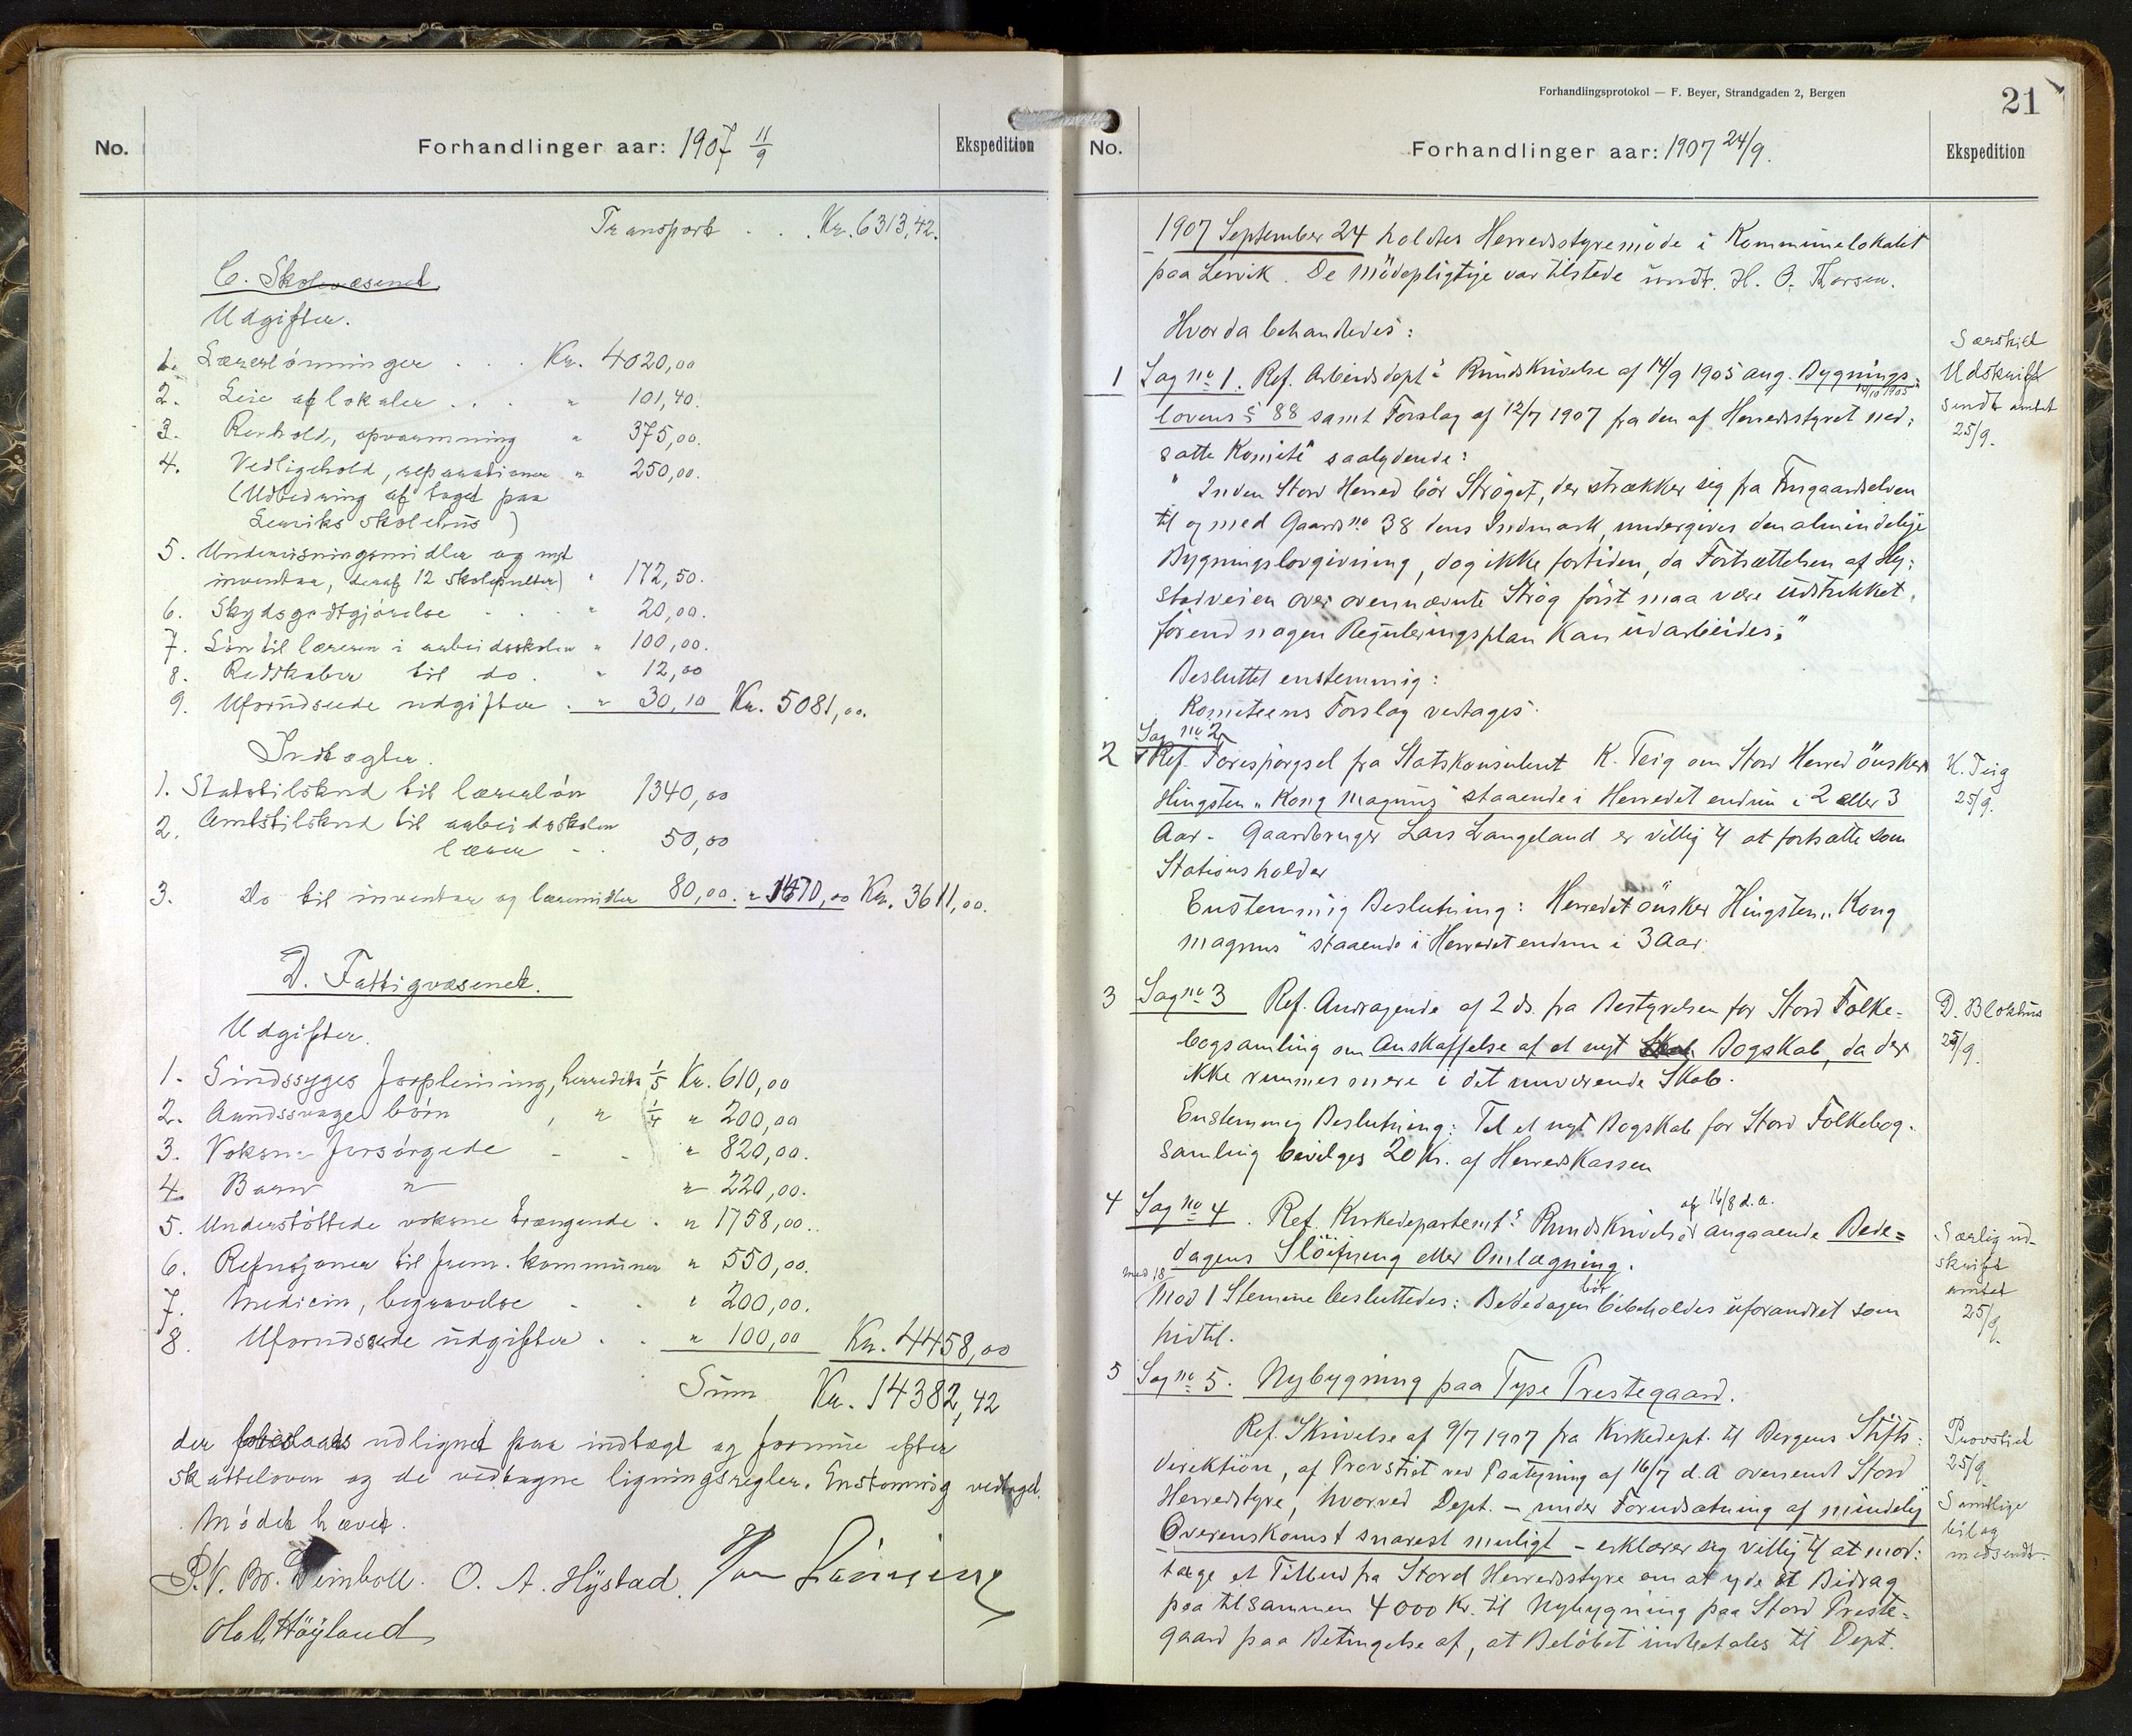 No.
Forhandlinger aar: 1907 11/9
Ekspedition
Transport . . Kr. 6313,42.
C. Skolevæsenet.
Udgifter.
1. Lærerlønninger . . . Kr. 4020,00
2. Leie af lokaler . . . " 101,40.
3. Renhold, opvarmning " 375,00.
4. Vedligehold, reparationer " 250,00.
(Udbedring af taget paa
Lerviks skolehus)
5. Undervisningsmidler og nyt
inventar, deraf 12 skolepulter) " 172,50.
6. Skydsgodtgjørelse . . . " 20,00.
7. Løn til læreren i arbeidsskolen " 100,00.
8. Redskaber til do. " 12,00
9. Uforudseede udgifter . " 30,10 Kr. 5081,00.
Indtægter.
1. Statstilskud til lærerløn 1340,00
2. Amtstilskud til arbeidsskolen
lærer - . 50,00
3. do til inventar og læremidler 80,00. " 1470,00 Kr. 3611,00.
D. Fattigvæsenet.
Udgifter.
1. Sindssyges forpleining, herredets 1/5 Kr. 610,00
2. Aandssvage børn , " 1/4 " 200,00
3. Voksne forsørgede - . " 820,00.
4. Barn " " 220,00.
5. Understøttede voksne trængende . " 1758,00.
6. Refusjoner til frem. kommuner " 550,00.
7. Medicin, begravelse . . " 200,00.
8. Uforudseede udgifter . . " 100,00 Kr. 4458,00
Sum Kr. 14382,42
der udlignet paa indtægt og formue efter
skatteloven og de vedtagne ligningsregler. Enstemmig vedtaget.
Mødet hævet.
P.V. Br. Weinholl. O. A. Hystad.
Ola A. Høyland
Forhandlingsprotokol — F. Beyer, Strandgaden 2, Bergen
21
No.
Forhandlinger aar: 1907 24/9.
Ekspedition
1907 September 24 holdtes Herredsstyremøde i Kommunelokalet
paa Lervik. De mødepligtige var tilstede undt. H. O. Thorsen.
Hvor da behandledes:
1 Sag no 1. Ref. Arbeidsdept.s Rundskrivelse af 14/9 1905 ang. Bygnings-
14/10 1905
lovens § 88 samt Forslag af 12/7 1907 fra den af Herredsstyret ned-
satte Komite saalydende:
" Inden Stord Herred bør Strøget, der strækker sig fra
til og med Gaards no 38 dens Indmark, undergives den almindelige
Bygningslovgivning, dog ikke fortiden, da Fortsættelsen af Hy-
stadveien over ovennævnte Strøg først maa være udstukket,
førend nogen Reguleringsplan kan udarbeides."
Besluttet enstemmig:
Komiteens Forslag vedtages.
Særskilt
Udskrift
sendt amtet
25/9.
Sag no 2
2 Ref. Forespørgsel fra Statskonsulent K. Teig om Stord Herred ønsker
Hingsten "Kong Magnus" staaende i Herredet endnu i 2 eller 3
Aar - Gaardbruger Lars Langeland er villig til at fortsætte som
Stationsholder
Enstemmig Beslutning: Herredet ønsker Hingsten "Kong
Magnus" staaende i Herredet endnu i 3 Aar.
K. Teig
25/9.
3 Sag no 3 Ref. Andragende af 2 ds. fra Bestyrelsen for Stord Folke-
bogsamling om Anskaffelse af et nyt Skab Bogskab, da der
ikke rummes mere i det nuværende Skab.
Enstemmig Beslutning: Til et nyt Bogskab for Stord Folkebog-
samling bevilges 20 Kr. af Herredskassen
D. Blokhus
25/9.
4 Sag no 4. Ref. Kirkedepartemt.s Rundskrivelse af 16/8 d.a. angaaende Bede-
dagens Sløifning eller Omlægning.
med 18
Mod 1 Stemme besluttedes: Bededagen bør bibeholdes uforandret som
hidtil.
Særlig ud-
skrift
amtet
25/9.
5 Sag no 5. Nybygning paa Tyse Prestegaard.
Ref. Skrivelse af 9/7 1907 fra Kirkedept. til Bergens Stifts-
direktion, af Provstiet ved Paategning af 16/7 d.A oversendt Stord
Herredstyre, hvorved Dept. - under Forudsætning af mindelig
Overenskomst snarest muligt - erklærer sig villig til at mod-
tage et Tilbud fra Stord Herredsstyre om at yde et Bidrag
paa tilsammen 4000 Kr. til Nybygning paa Stord Preste-
gaard paa Betingelse af, at Beløbet indbetales til Dept.
Provstiet
25/9
Samtlige
bilag
medsendt.